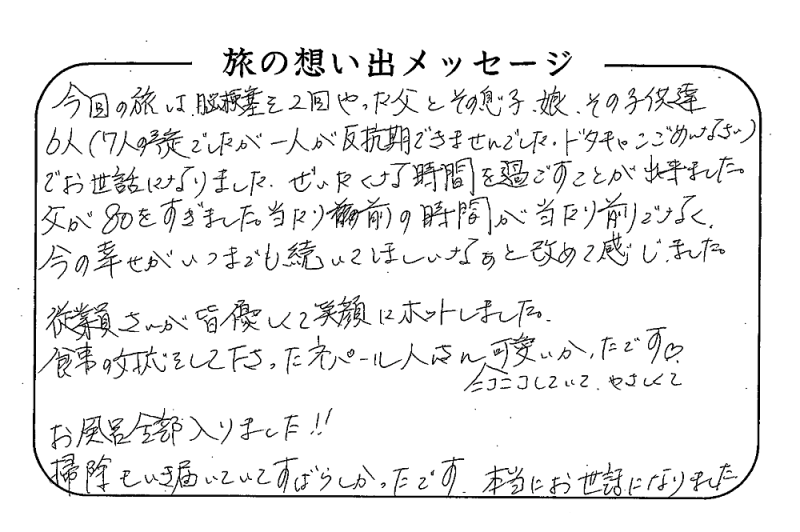 旅の想い出メッセージ
今回の旅は、脳梗塞を2回やった父とその息子、娘、その子供達
6人(7人の予定でしたが一人が反抗期できませんでした・ドタキャンごめんなさい)
でお世話になりました。ぜいたくな時間を過ごすことが出来ました。
父が80をすぎました。当たり前の時間が当たり前でなく、
今の幸せがいつまでも続いてほしいなぁと改めて感じました。
従業員さんが皆優しくて笑顔にホットしました。
食事の対応をして下さったネパール人さん可愛いかったです♡
ニコニコしていて、やさしくて
お風呂全部入りました!!
掃除もいき届いていてすばらしかったです。本当にお世話になりました